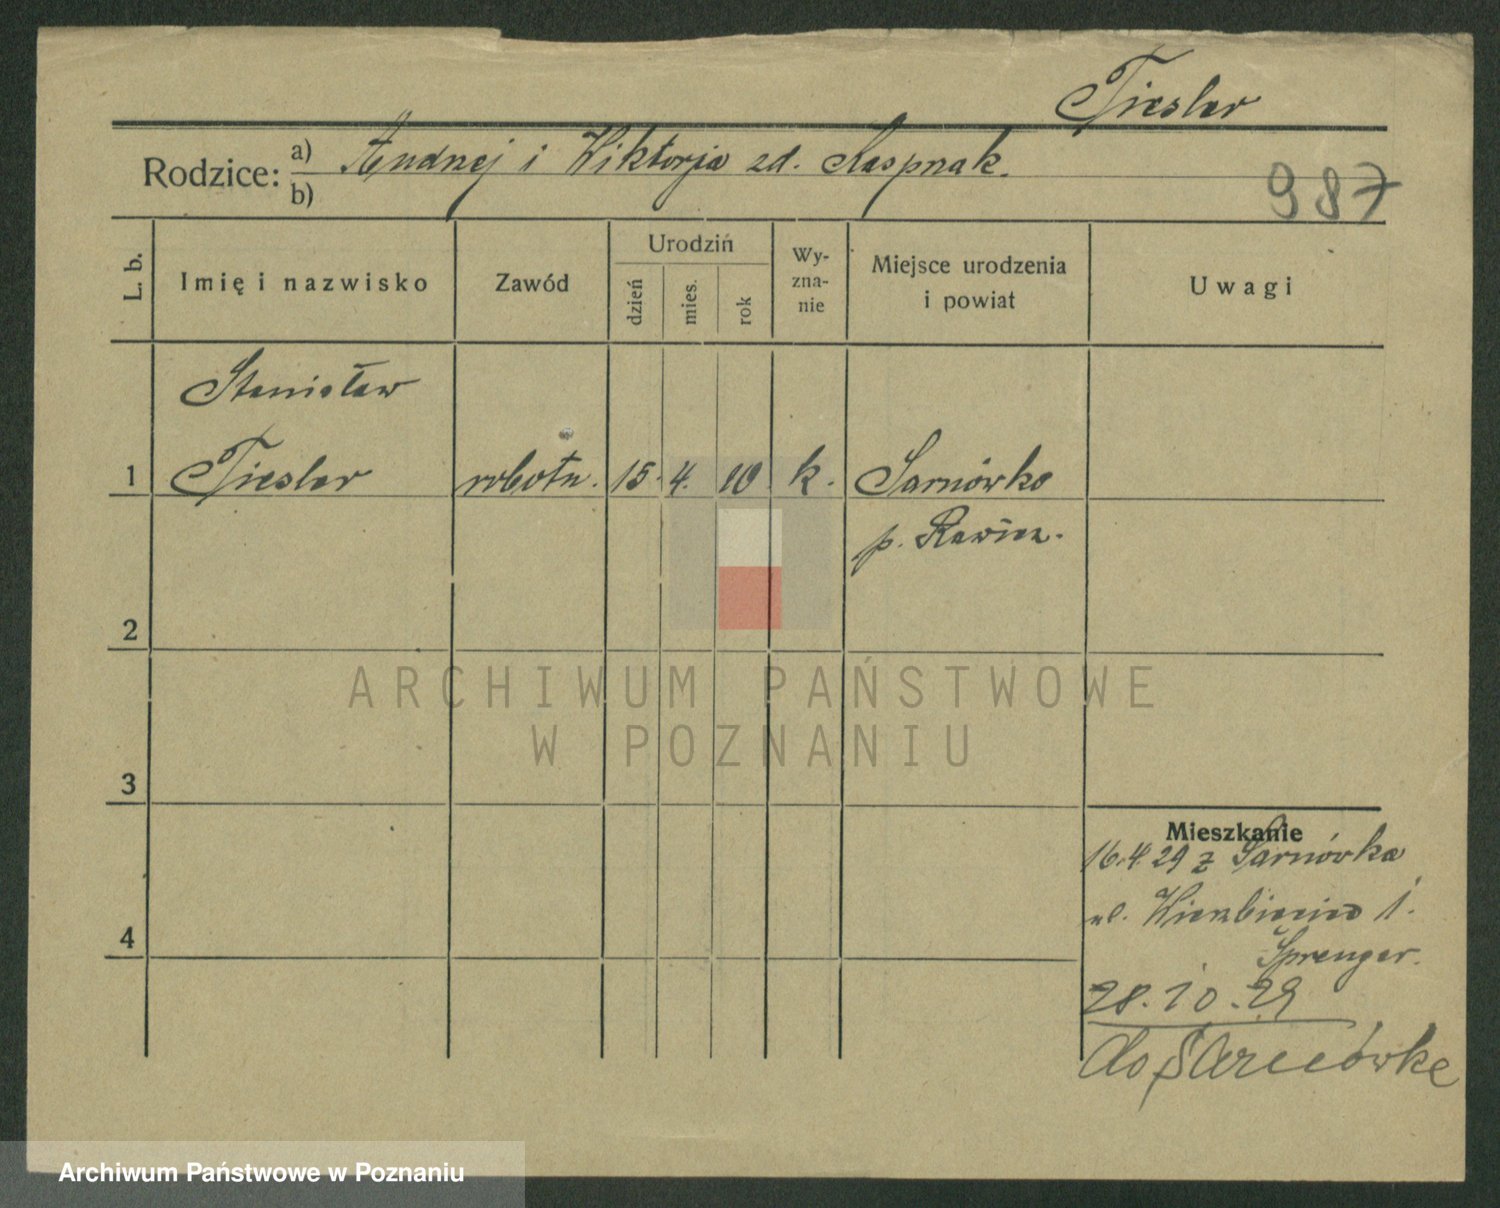 Tiesler
Rodzice: a) Andrzej i Wiktorja zd. Kasprzak.
b)
987
L. b.
Imię i nazwisko
Zawód
Urodziń
dzień
mies.
rok
Wy-
zna-
nie
Miejsce urodzenia
i powiat
Uwagi
Stanisław
1 Tiesler robotn. 15. 4. 10 k. Sarnówko
p. Rawicz.
2
3
4
Mieszkanie
16.4.29 z Sarnówka
ul. Wierzbięcice 1.
Sprenger.
28.10.29
do Sarnówke
ARCHIWUM PAŃSTWOWE
W POZNANIU
Archiwum Państwowe w Poznaniu